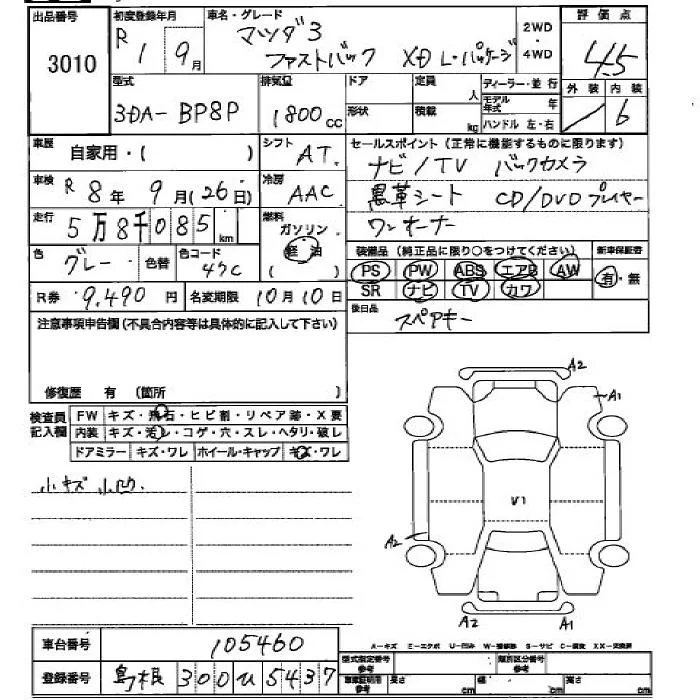 出品番号
3010
初度登録年月
R 1 9月
車名・グレード
マツダ3
ファストバック XD L・パッケージ
2WD
・
4WD
評価点
4.5
外装 内装
6
型式
3DA-BP8P
排気量
1800cc
ドア
形状
定員
人
積載
kg
ディーラー・並行
モデル年式 年
ハンドル 左・右
車歴
自家用・( )
シフト
AT
車検
R 8年 9月(26日)
冷房
AAC
走行
5万8千085km
燃料
ガソリン
軽油
色
グレー
色替
色コード
47C
R券 9,490円
名変期限 10月10日
セールスポイント(正常に機能するものに限ります)
ナビ/TV バックカメラ
黒革シート CD/DVDプレイヤー
ワンオーナー
装備品(純正品に限り○をつけてください)
新車保証書
PS PW ABS エアB AW
SR ナビ TV カワ
有・無
後日品
スペアキー
注意事項申告欄(不具合内容等は具体的に記入して下さい)
修復歴 有 (箇所 )
検査員記入欄
FW キズ・飛石・ヒビ割・リペア跡・X要
内装 キズ・汚レ・コゲ・穴・スレ・ヘタリ・破レ
ドアミラー キズ・ワレ ホイール・キャップ キズ・ワレ
小キズ 小凹
A2
A1
V1
A2
A2
A1
車台番号
105460
登録番号
島根 300 ひ 5437
A-キズ E-エクボ U-凹み W-補修跡 S-サビ C-腐食 XX-交換済
型式指定番号
参考
類別区分番号
参考
車庫証明用
参考
長さ cm 幅 cm 高さ cm